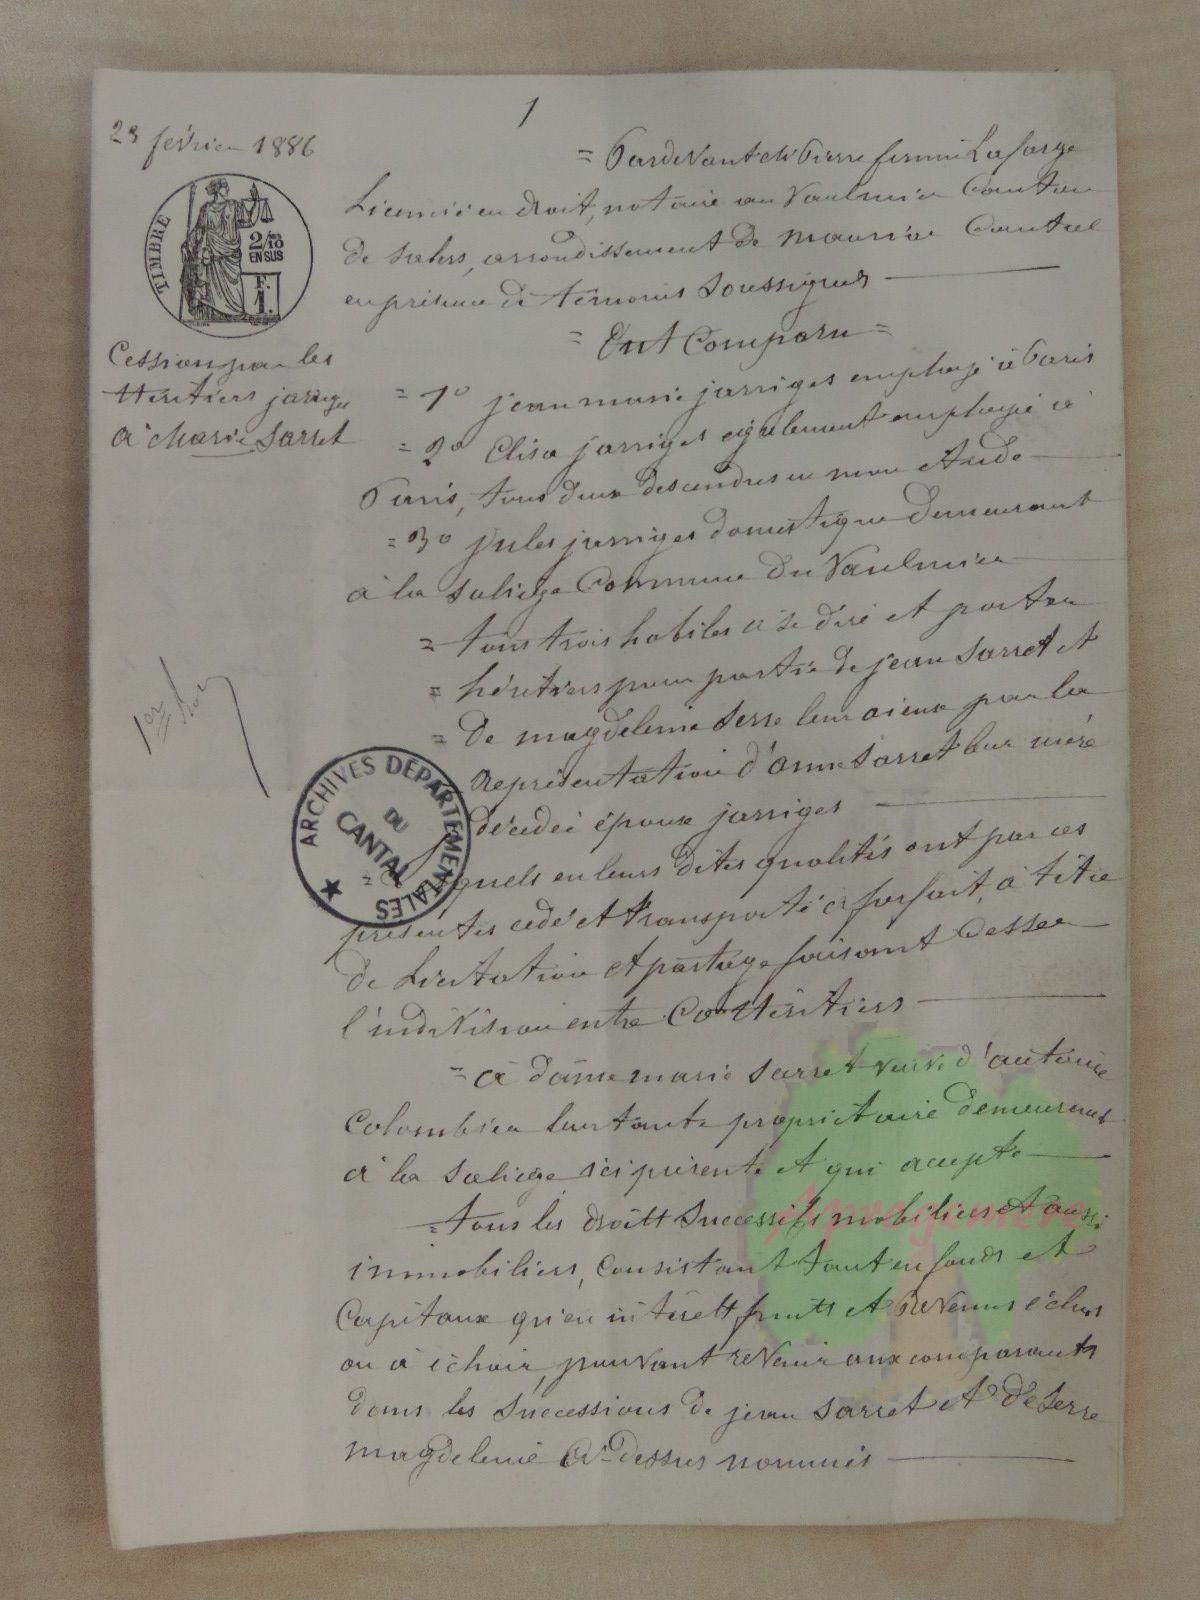 1
23 février 1886
TIMBRE
2/10
EN SUS
F.
1.
Cession par les
Héritiers jarriges
à Marie Sarret
1er
= Pardevant Me Pierre firmin Lafarge
Licencié en droit, notaire au Vaulmier Canton
de Salers, arrondissement de mauriac Cantal
en présence de témoins Soussignés
= Ont Comparu =
= 1o jean marie jarriges employé à Paris
= 2o Elisa jarriges également employée à
Paris, tous deux descendus en mon étude
= 3o jules jarriges domestique demeurant
à la Saliege Commune du Vaulmier
= tous trois habiles à se dire et porter
= héritiers pour partie de jean Sarret et
= de magdeleine Serre leurs aieux par la
représentation d'anne Sarret leur mère
décedée épouse jarriges
= Lesquels en leurs dites qualités ont par ces
présentes cedé et transporté à forfait, à titre
de Licitation et partage faisant Cesser
l'indivision entre CoHéritiers
= à dame marie Sarret veuve d'antoine
Colombier leur tante propriétaire demeurant
à la Saliege ici présente et qui accepte
= tous les droits Successifs mobiliers et aussi
immobiliers, Consistant tant en fonds et
Capitaux qu'en intérêts fruits et Revenus échus
ou à échoir, pouvant revenir aux comparants
dans les Successions de jean Sarret et de Serre
magdeleine Ci-dessus nommés
ARCHIVES DÉPARTEMENTALES
DU
CANTAL
Apregemere